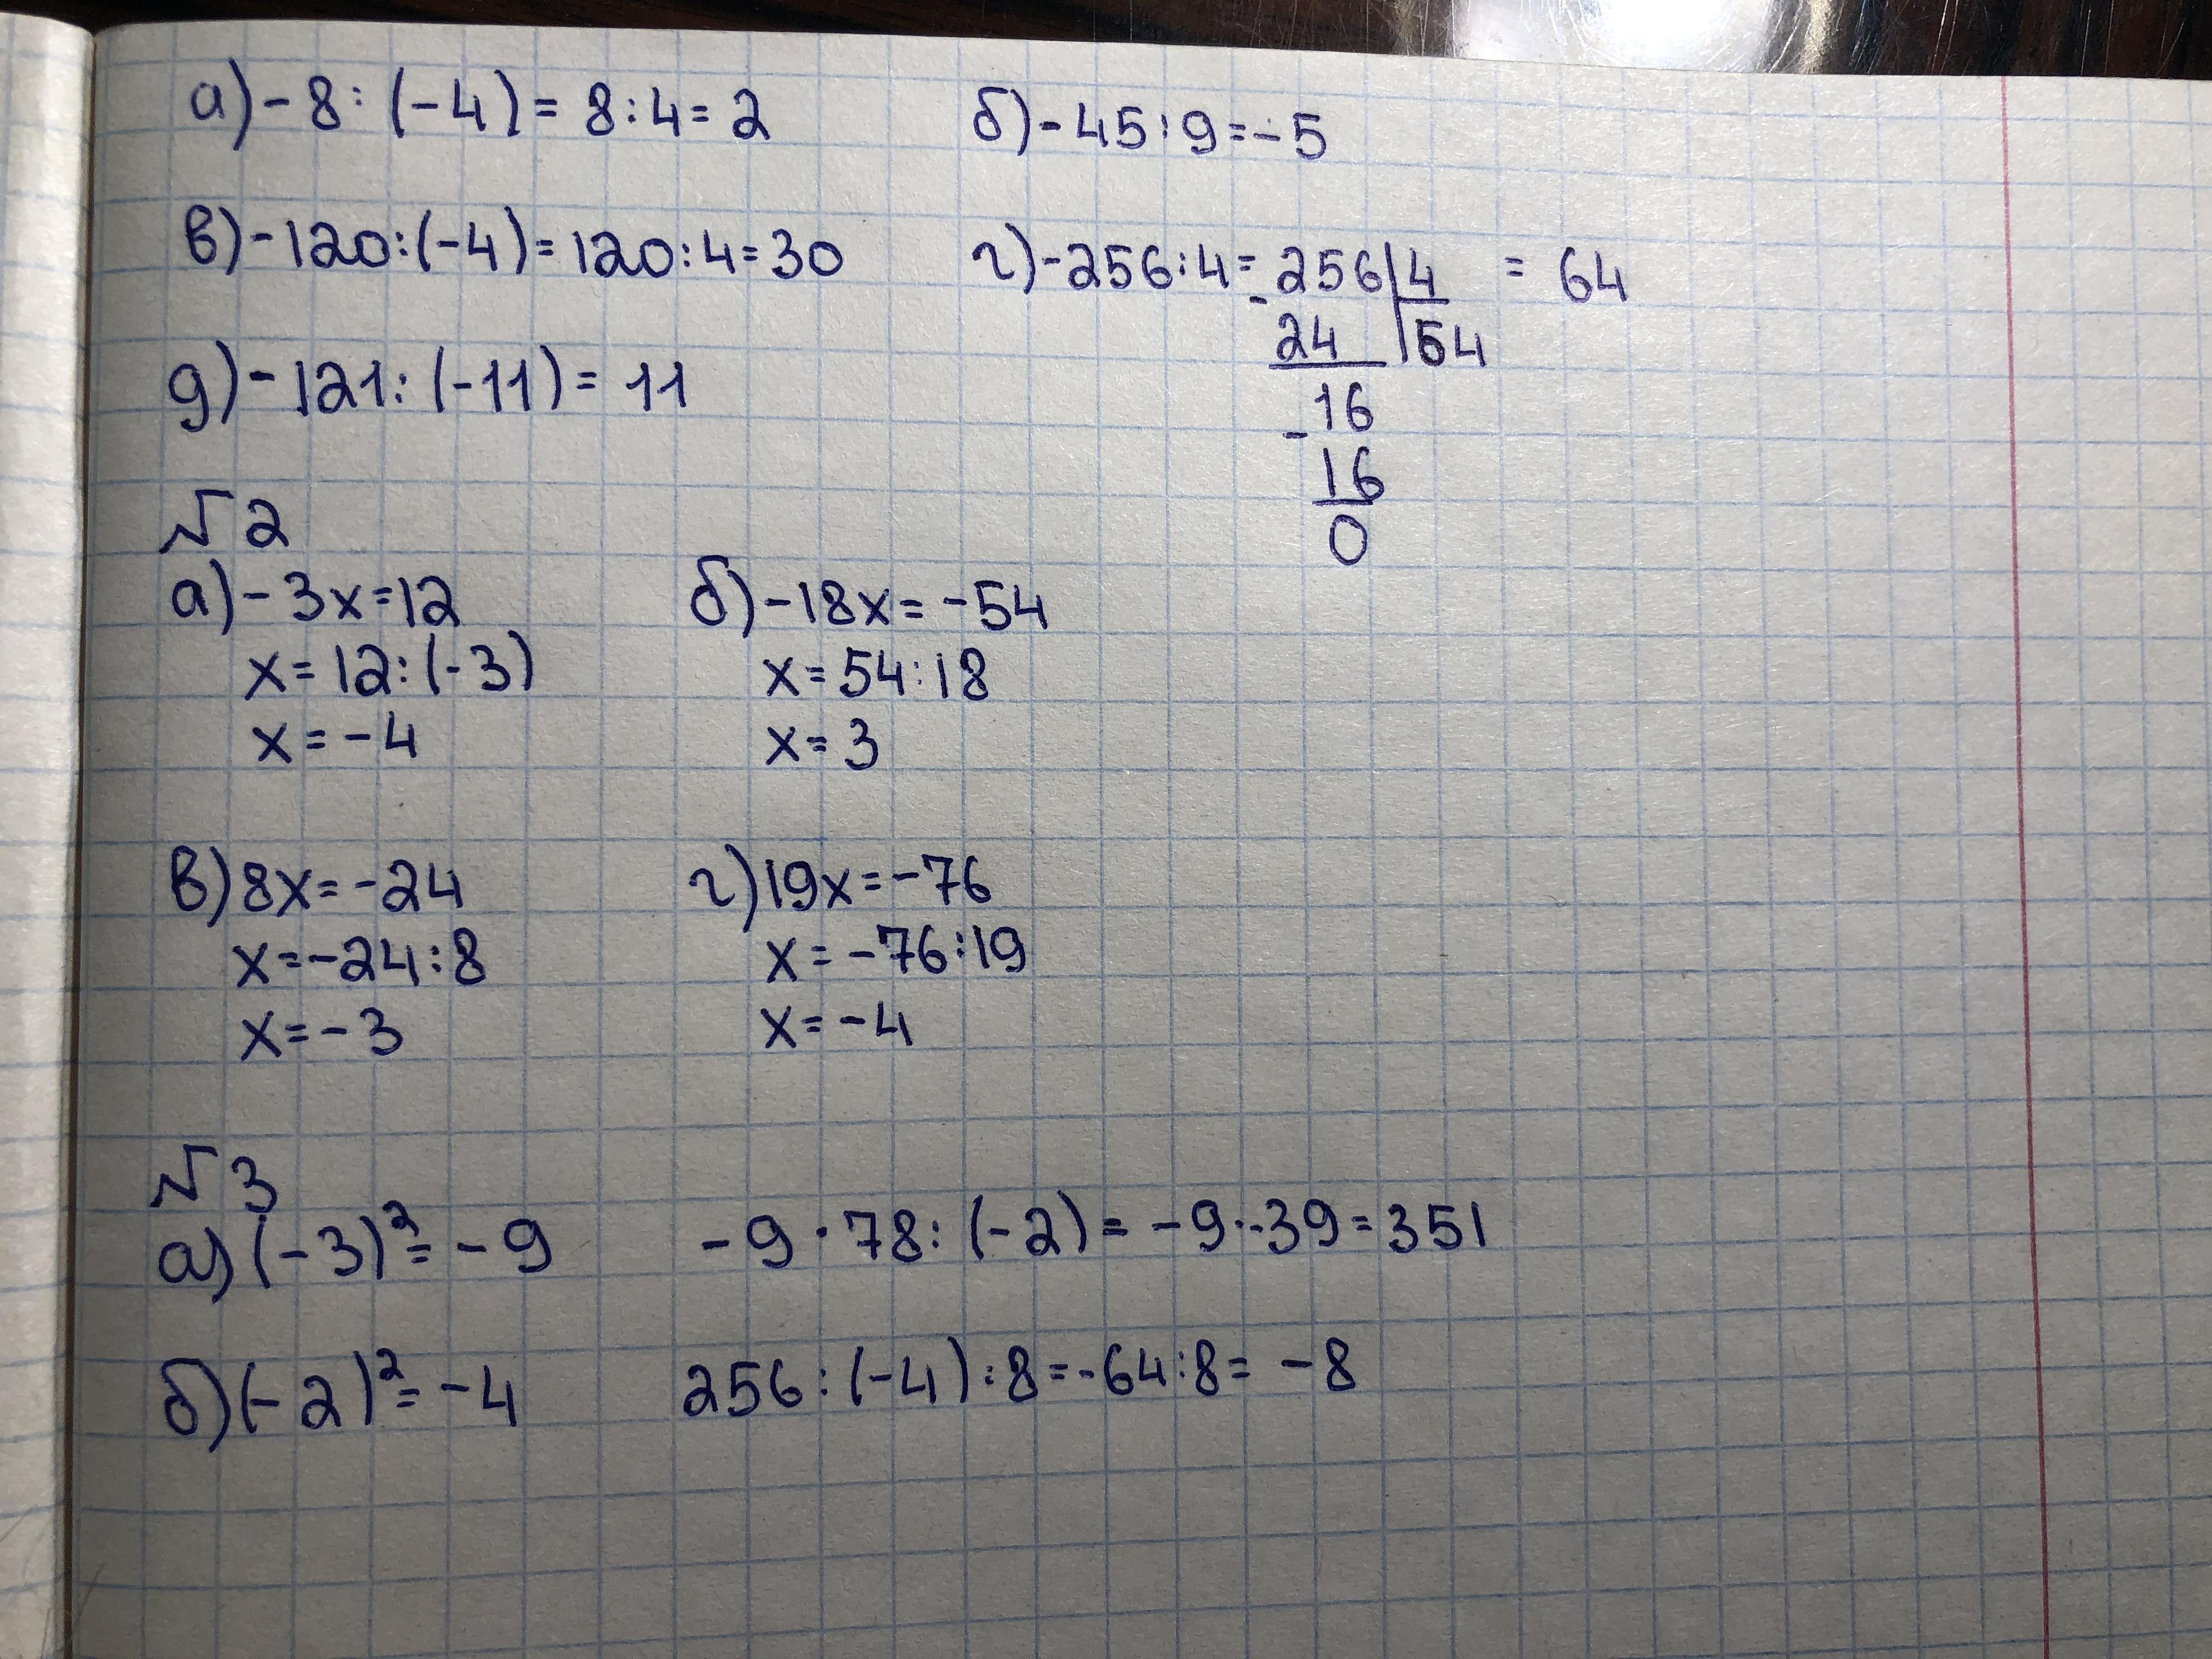 а) -8 : (-4) = 8 : 4 = 2
б) -45 : 9 = -5
в) -120 : (-4) = 120 : 4 = 30
г) -256 : 4 = 256 | 4 = 64
- 24 | 64
- 16
16
0
д) -121 : (-11) = 11
№2
а) -3x = 12
x = 12 : (-3)
x = -4
б) -18x = -54
x = 54 : 18
x = 3
в) 8x = -24
x = -24 : 8
x = -3
г) 19x = -76
x = -76 : 19
x = -4
№3
а) (-3)² = -9
-9 · 78 : (-2) = -9 · -39 = 351
б) (-2)² = -4
256 : (-4) : 8 = -64 : 8 = -8